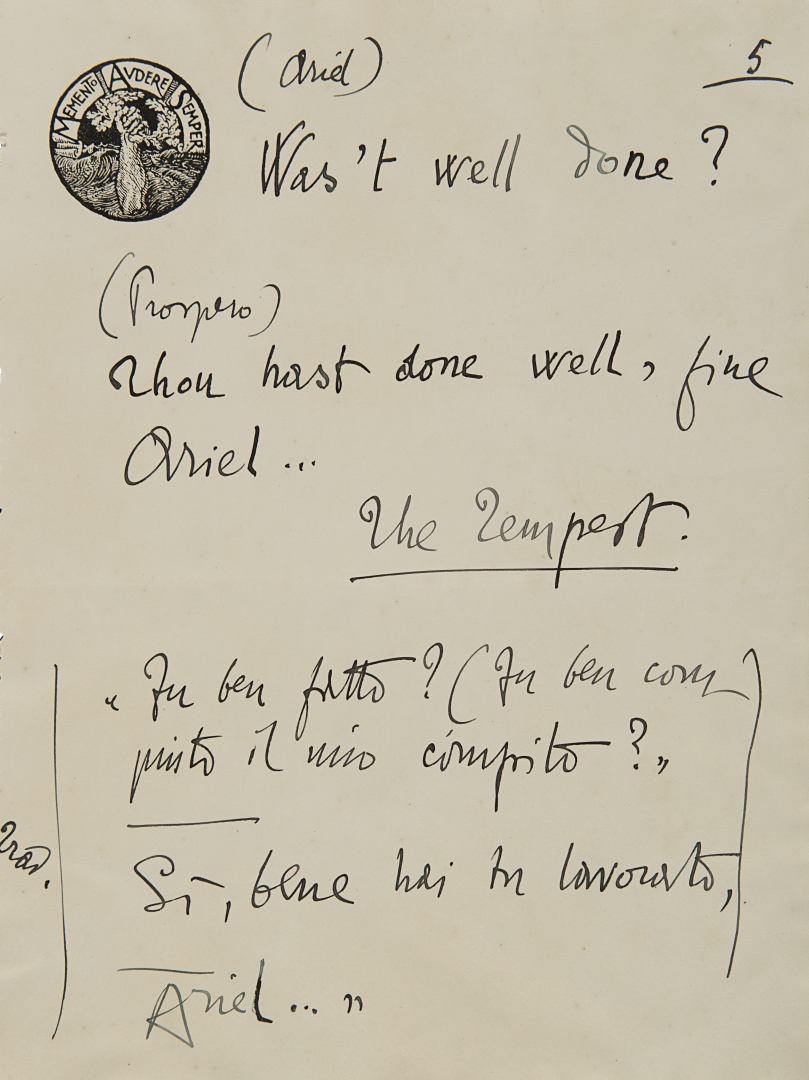 MEMENTO AVDERE SEMPER
(Ariel)
5
Was't well done?
(Prospero)
Thou hast done well, fine
Ariel...
The Tempest.
« Fu ben fatto? (Fu ben com
piuto il mio cómpito? »
Trad.
Sì, bene hai tu lavorato,
Ariel... »